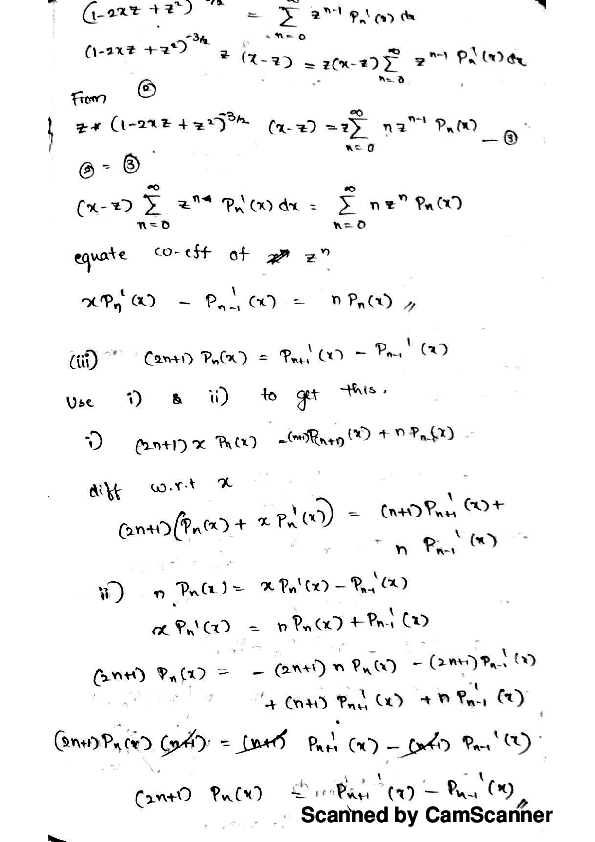 (1-2xz + z²)^-3/2 = Σ_{n=0}^∞ z^{n-1} Pn'(x) dx
(1-2xz + z²)^-3/2 z (x-z) = z(x-z) Σ_{n=0}^∞ z^{n-1} Pn'(x) dx
From ②
z * (1-2xz + z²)^-3/2 (x-z) = z Σ_{n=0}^∞ n z^{n-1} Pn(x) — ③
② = ③
(x-z) Σ_{n=0}^∞ z^n Pn'(x) dx = Σ_{n=0}^∞ n z^n Pn(x)
equate co-eff of z^n
x Pn'(x) - Pn-1'(x) = n Pn(x) //
(iii) (2n+1) Pn(x) = Pn+1'(x) - Pn-1'(x)
Use i) & ii) to get this.
i) (2n+1) x Pn(x) = (n+1)P(n+1)(x) + n Pn-1(x)
diff w.r.t x
(2n+1)(Pn(x) + x Pn'(x)) = (n+1) Pn+1'(x) +
n Pn-1'(x)
ii) n Pn(x) = x Pn'(x) - Pn-1'(x)
x Pn'(x) = n Pn(x) + Pn-1'(x)
(2n+1) Pn(x) = - (2n+1) n Pn(x) - (2n+1) Pn-1'(x)
+ (n+1) Pn+1'(x) + n Pn-1'(x)
(2n+1) Pn(x) (n+1) = (n+1) Pn+1'(x) - (n+1) Pn-1'(x)
(2n+1) Pn(x) = Pn+1'(x) - Pn-1'(x) //
Scanned by CamScanner